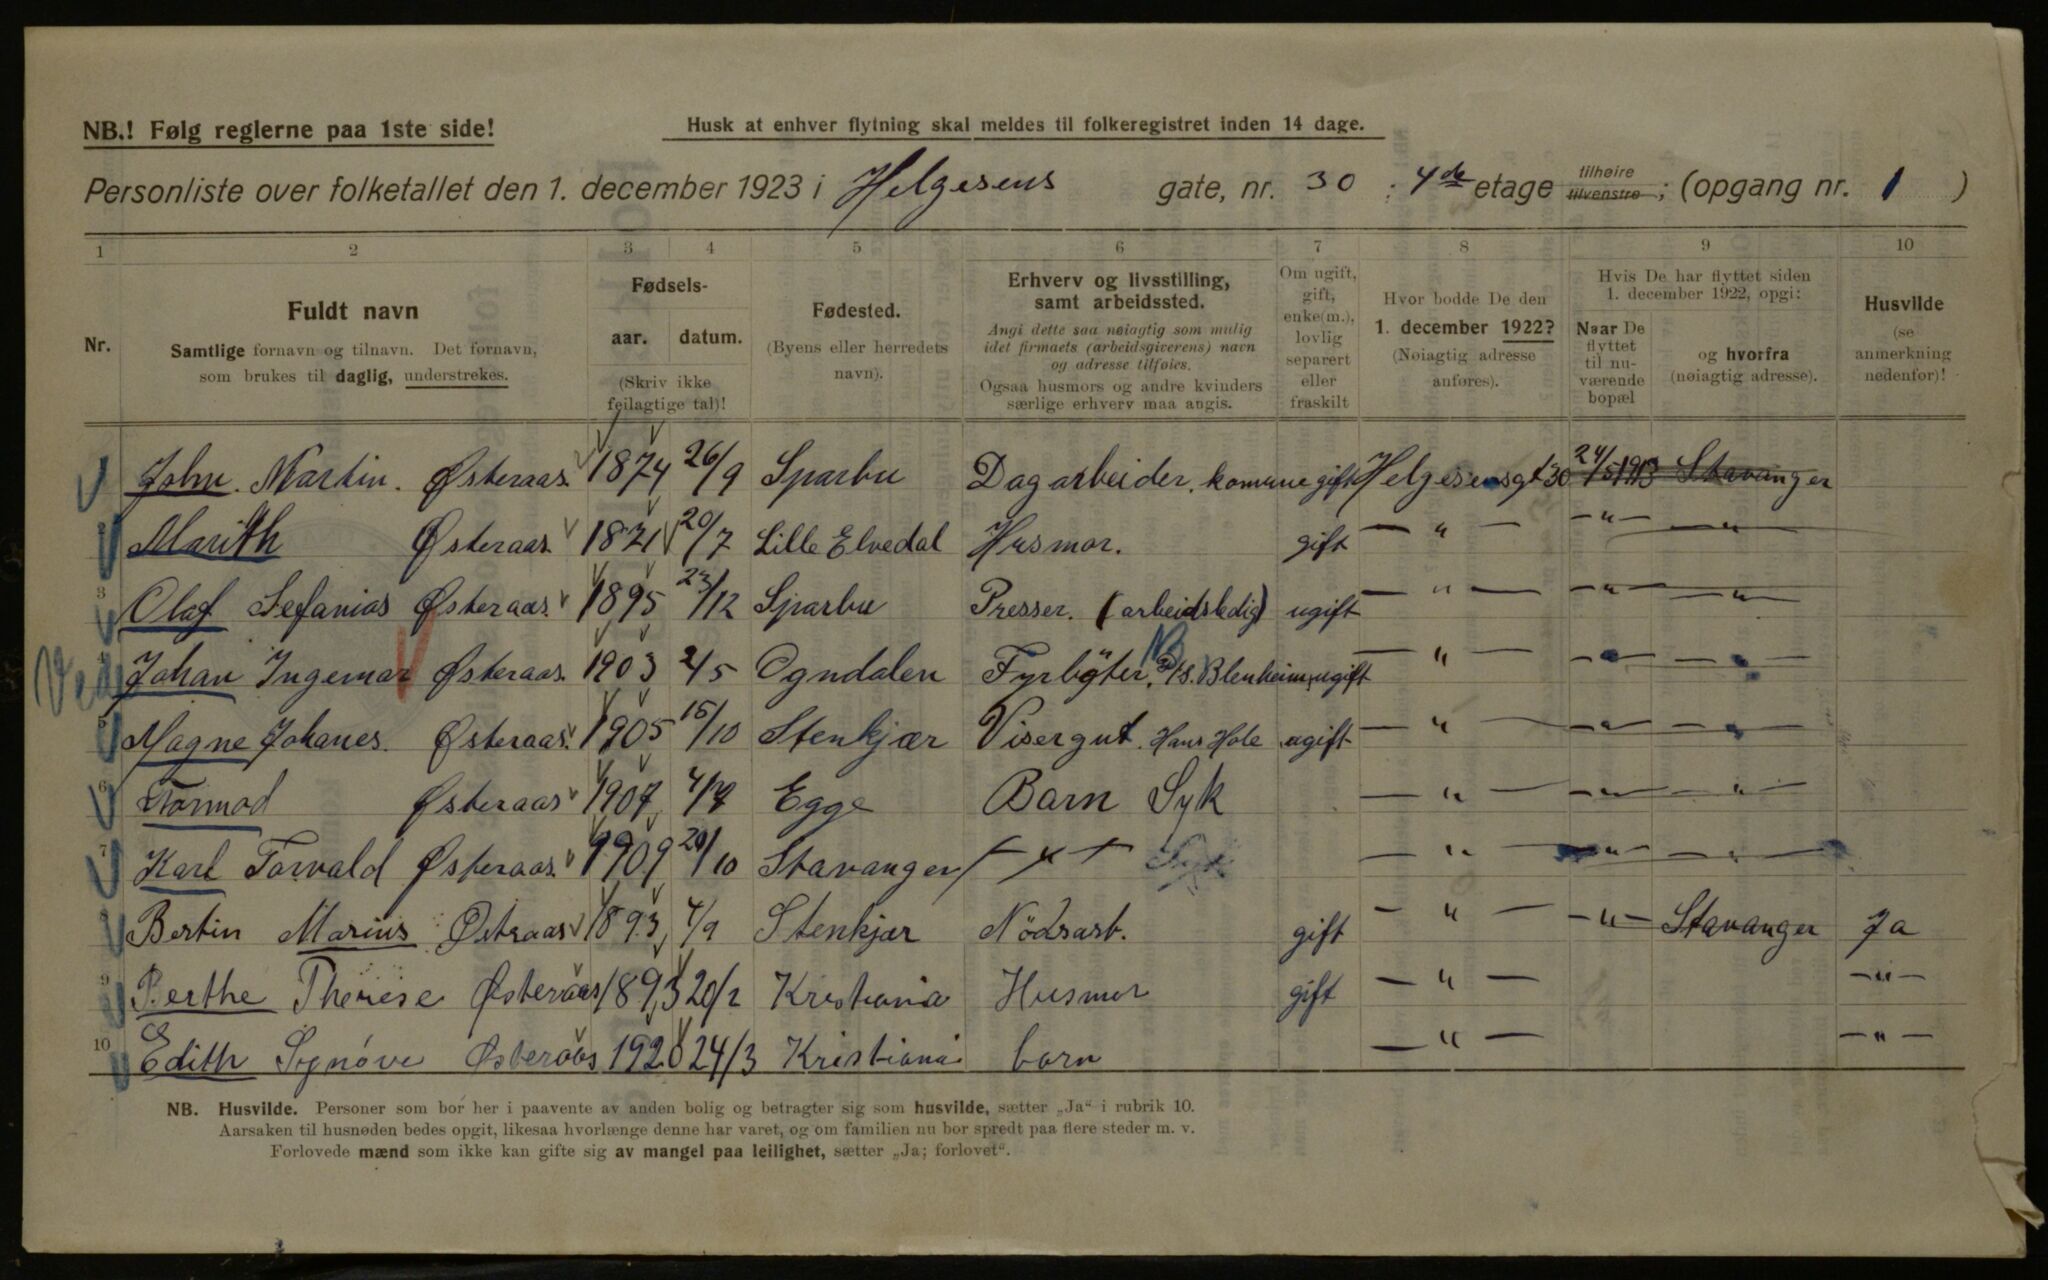 NB.! Følg reglerne paa 1ste side!
Husk at enhver flytning skal meldes til folkeregistret inden 14 dage.
Personliste over folketallet den 1. december 1923 i Helgesens gate, nr. 30 ; 4de etage tilhøire tilvenstre ; (opgang nr. 1 )
1 2 3 4 5 6 7 8 9 10
Nr.
Fuldt navn
Samtlige fornavn og tilnavn. Det fornavn,
som brukes til daglig, understrekes.
Fødsels-
aar. datum.
(Skriv ikke
feilagtige tal)!
Fødested.
(Byens eller herredets
navn).
Erhverv og livsstilling,
samt arbeidssted.
Angi dette saa nøiagtig som mulig
idet firmaets (arbeidsgiverens) navn
og adresse tilføies.
Ogsaa husmors og andre kvinders
særlige erhverv maa angis.
Om ugift,
gift,
enke(m.),
lovlig
separert
eller
fraskilt
Hvor bodde De den
1. december 1922?
(Nøiagtig adresse
anføres).
Hvis De har flyttet siden
1. december 1922, opgi:
Naar De
flyttet
til nu-
værende
bopæl
og hvorfra
(nøiagtig adresse).
Husvilde
(se
anmerkning
nedenfor)!
John. Martin. Østeraas. 1874 26/9 Sparbu Dagarbeider. komune gift Helgesensgt 30 24/5 1913 Stavanger
Marith Østeraas 1871 20/7 Lille Elvedal Husmor. gift — " — — " — — " —
3 Olaf Sefanias Østeraas 1895 23/12 Sparbu Presser. (arbeidsledig) ugift — " — — " — — " —
4 Johan Ingemar Østeraas. 1903 2/5 Ogndalen Fyrbøter. D/S. Blenheim ugift — " — — " — — " —
5 Magne Johanes. Østeraas. 1905 15/10 Stenkjær Visergut. Hans Hole ugift — " — — " — — " —
6 Tormod Østeraas 1907 Egge Barn Syk — " — — " — — " —
7 Karl Torvald Østeraas. 1909 20/10 Stavanger — " — — " — — " — — " —
8 Bertin Marius Østraas 1893 4/9 Stenkjær Nödsarb. gift — " — — " — Stavanger Ja
9 Berthe Therese Østeraas 1893 20/2 Kristiania Husmor gift — " — — " —
10 Edith Sognøve Østeraas 1920 24/3 Kristiania barn — " — — " —
NB. Husvilde. Personer som bor her i paavente av anden bolig og betragter sig som husvilde, sætter „Ja“ i rubrik 10.
Aarsaken til husnøden bedes opgit, likesaa hvorlænge denne har varet, og om familien nu bor spredt paa flere steder m. v.
Forlovede mænd som ikke kan gifte sig av mangel paa leilighet, sætter „Ja; forlovet“.